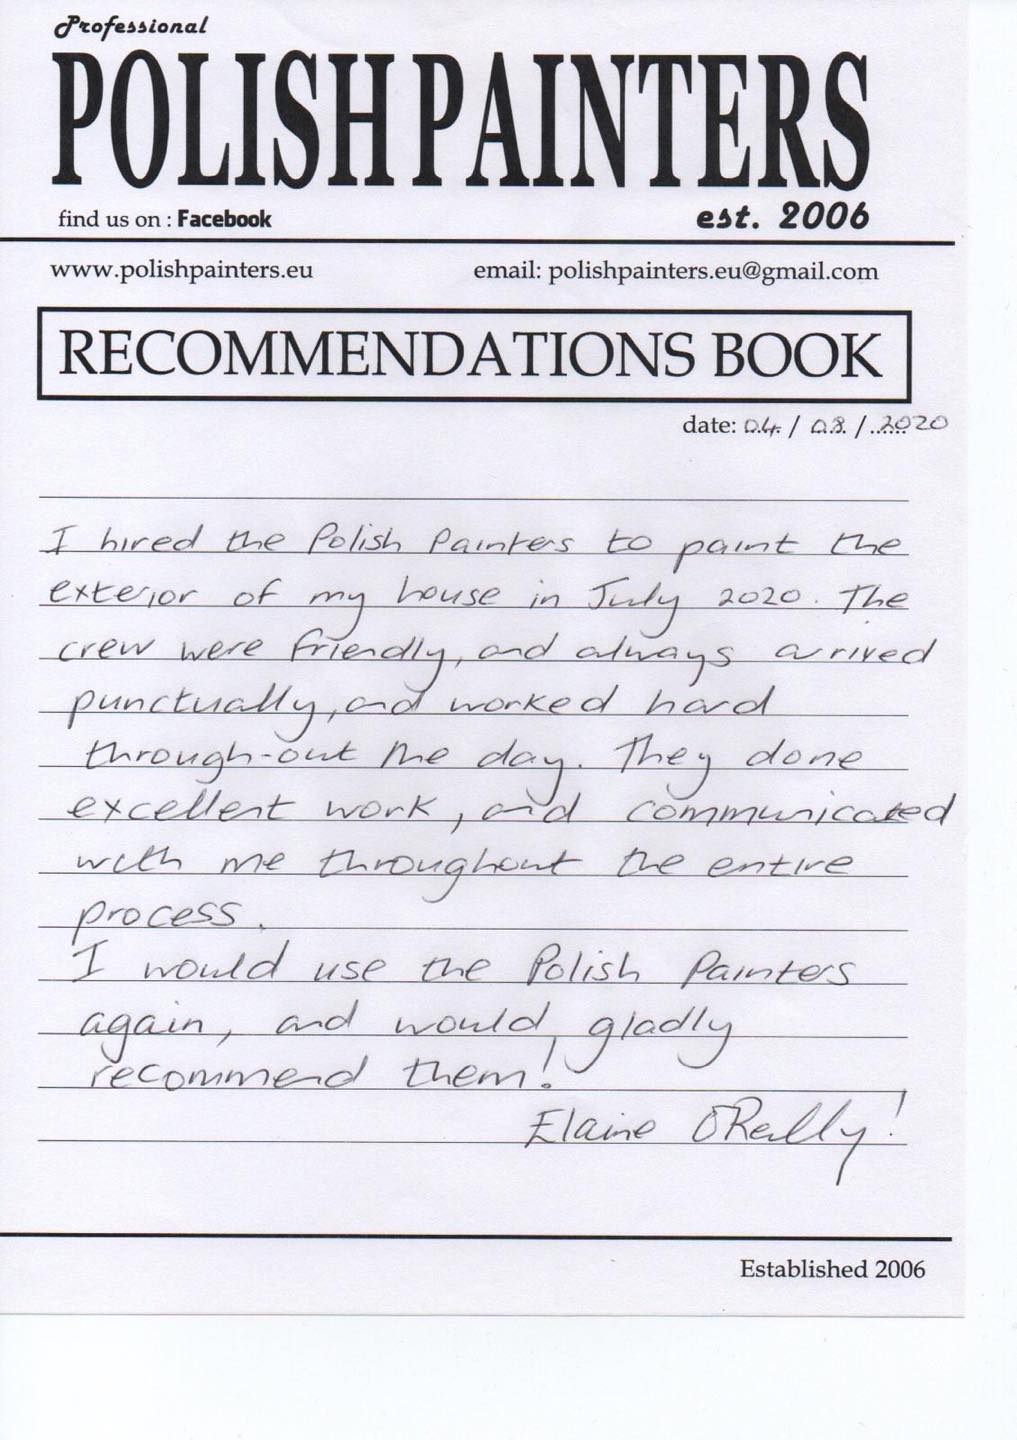 Professional
POLISH PAINTERS
find us on : Facebook
est. 2006
www.polishpainters.eu
email: polishpainters.eu@gmail.com
RECOMMENDATIONS BOOK
date: 04 / 08 / 2020
I hired the Polish Painters to paint the
exterior of my house in July 2020. The
crew were friendly, and always arrived
punctually, and worked hard
through-out the day. They done
excellent work, and communicated
with me throughout the entire
process.
I would use the Polish Painters
again, and would gladly
recommend them!
Elaine O'Reilly!
Established 2006